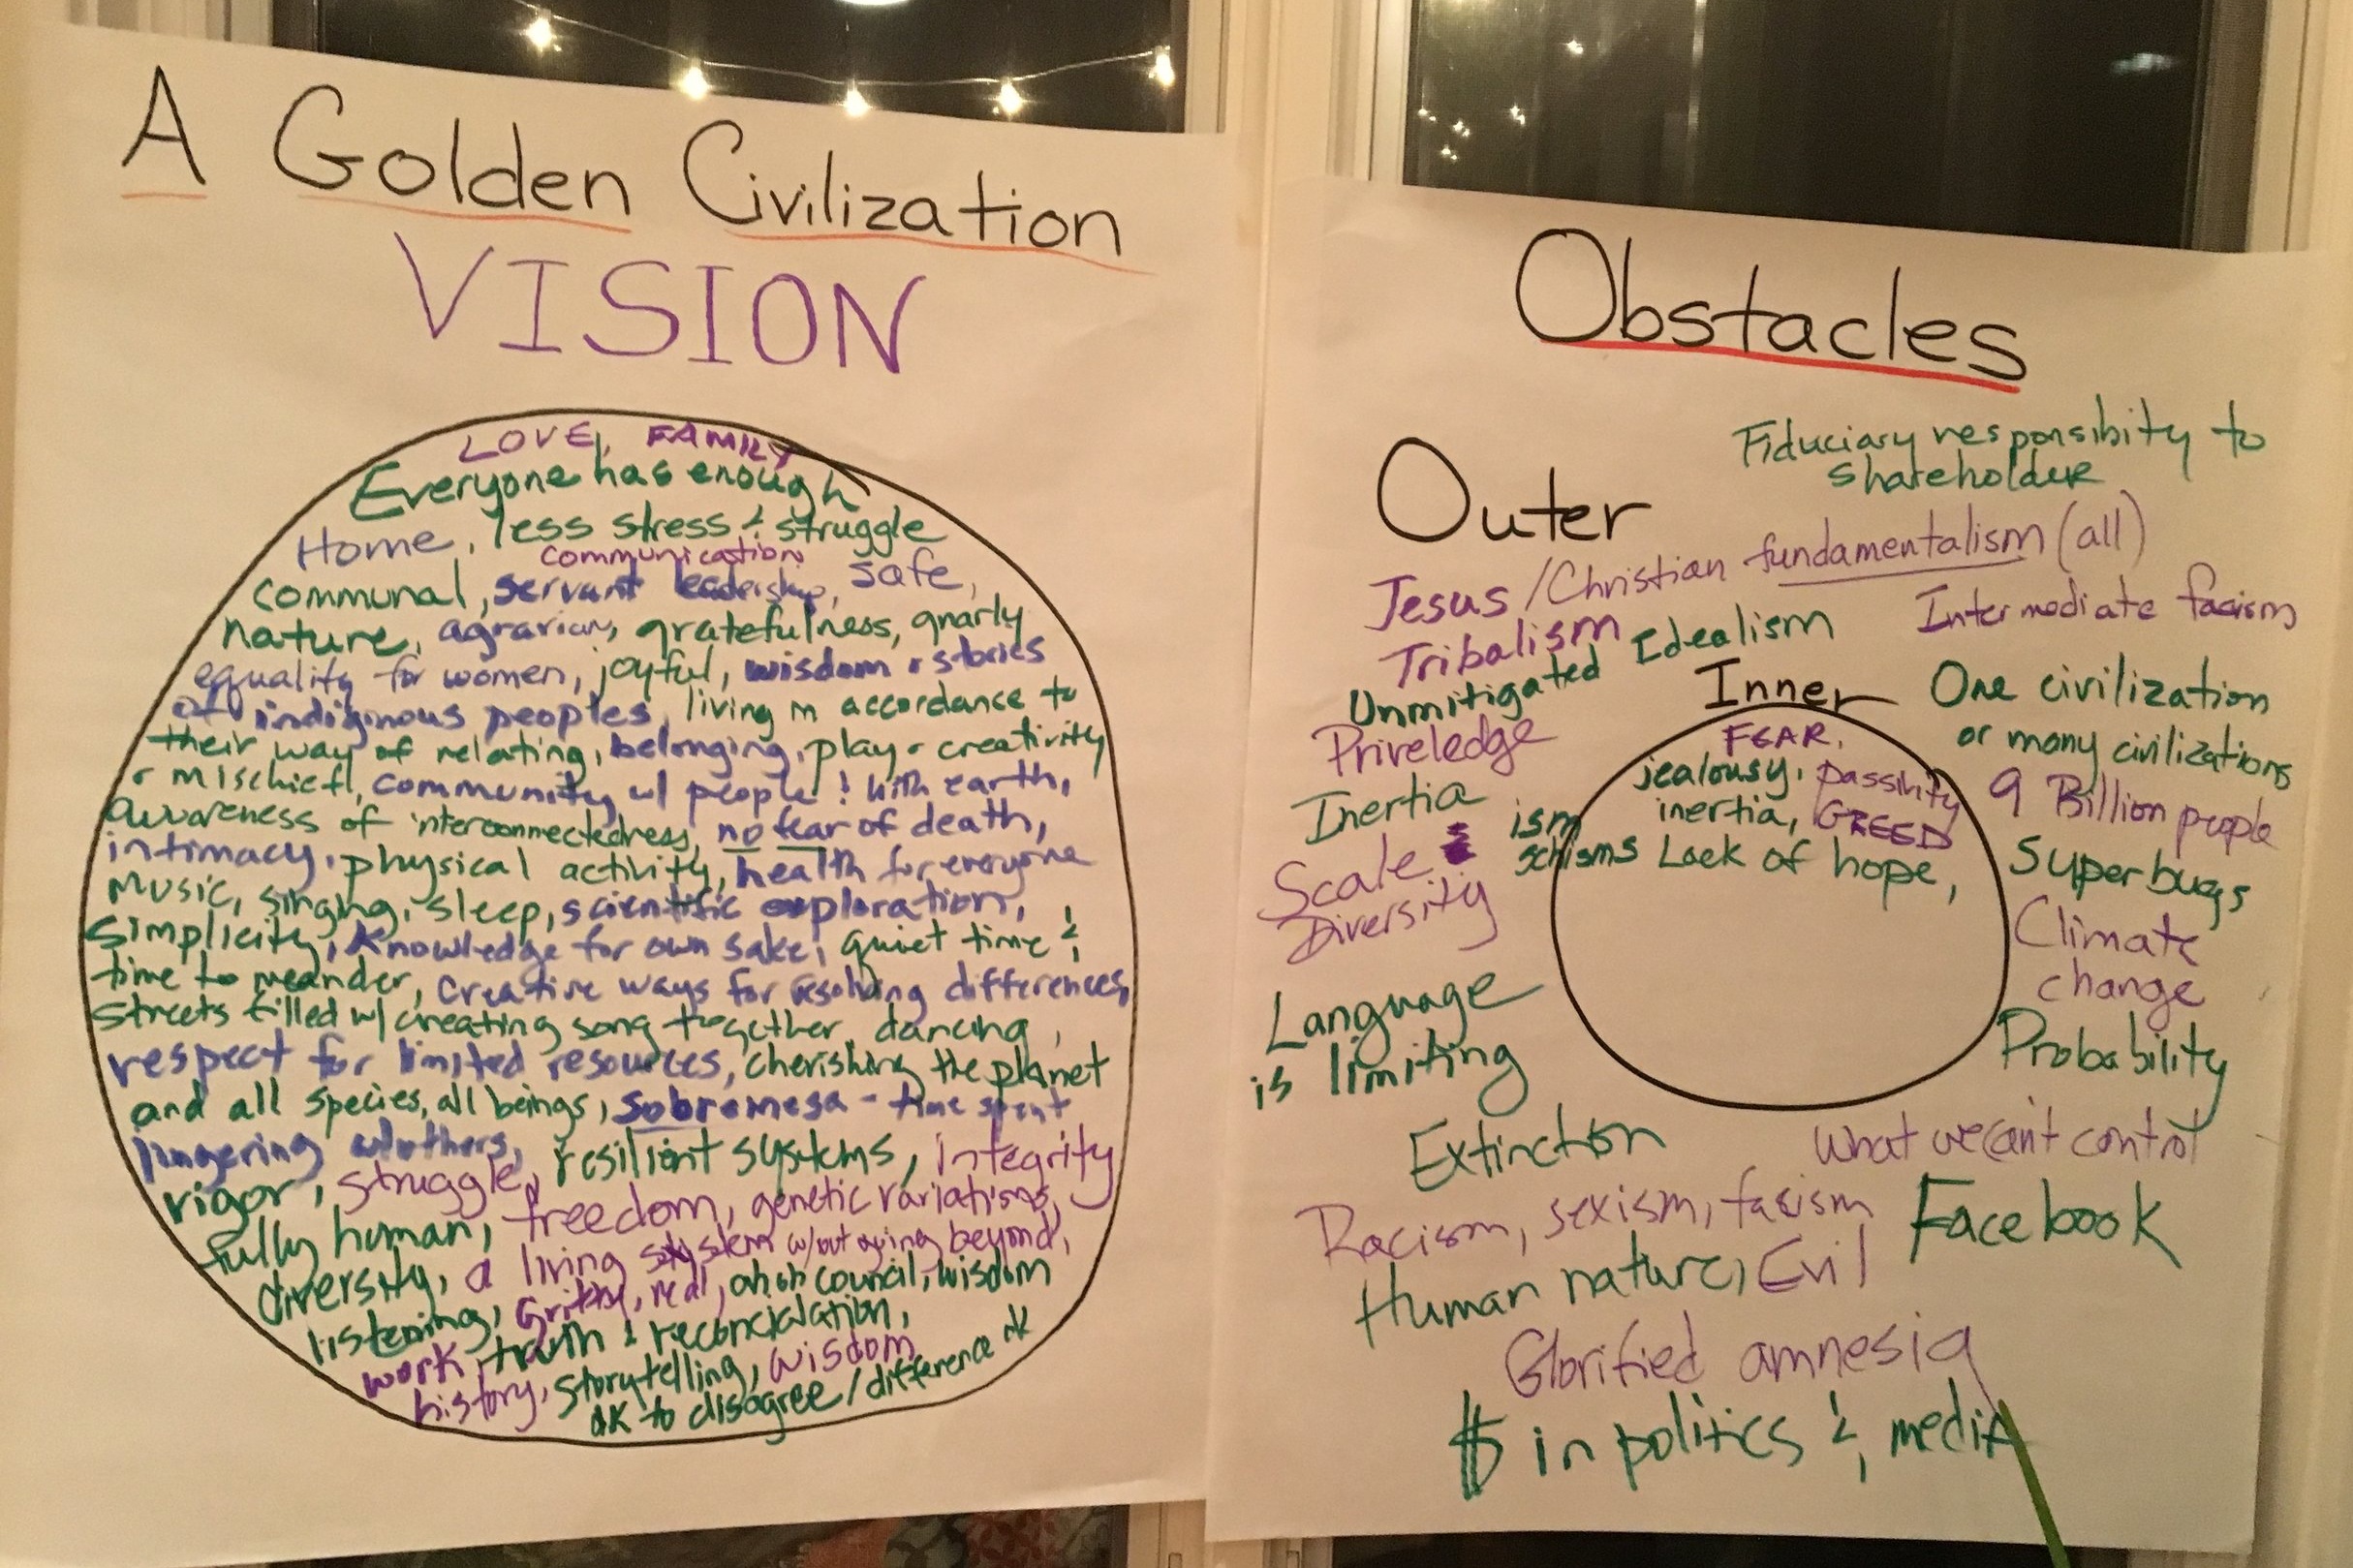 A Golden Civilization
VISION
LOVE, FAMILY
Everyone has enough
Home, less stress & struggle
communication
communal, servant leadership, safe,
nature, agrarian, gratefulness, gnarly
equality for women, joyful, wisdom & stories
of indiginous peoples, living in accordance to
their way of relating, belonging, play & creativity
& mischief, community w/ people & with earth,
awareness of interconnectedness, no fear of death,
intimacy, physical activity, health for everyone
music, singing, sleep, scientific exploration,
simplicity, knowledge for own sake, quiet time &
time to meander, creative ways for resolving differences,
streets filled w/ creating song together, dancing,
respect for limited resources, cherishing the planet
and all species, all beings, sobremesa - time spent
lingering w/others,
rigor, struggle, resilient systems, integrity
fully human, freedom, genetic variations,
diversity, a living system w/out going beyond,
listening, Gritty, real, council, wisdom
work, truth & reconcilation,
history, storytelling, wisdom
ok to disagree/difference ok
Obstacles
Outer
Fiduciary responsibity to
shareholder
Jesus / Christian fundamentalism (all)
Tribalism
Edealism
Intermediate facism
Unmitigated
Priveledge
Inertia
Scale
Diversity
ism
schisms
Language
is limiting
Inner
FEAR,
jealousy, passivity
inertia, GREED
Lack of hope,
One civilization
or many civilizations
9 Billion people
Superbugs
Climate
change
Probability
Extinction
What we can't control
Racism, sexism, facism
Facebook
Human nature, Evil
Glorified amnesia
$ in politics & media